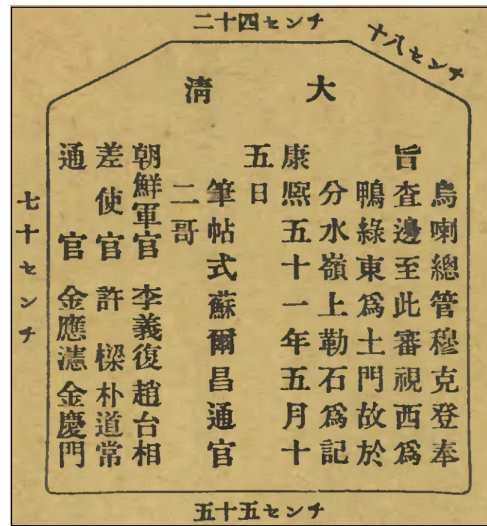 二十四センチ
十八センチ
大清
烏喇總管穆克登奉
旨査邊至此審視西爲
鴨綠東爲土門故於
分水嶺上勒石爲記
康熙五十一年五月十
五日
筆帖式蘇爾昌通官
二哥
朝鮮軍官 李義復趙台相
差使官 許樑朴道常
通官 金應瀗金慶門
七十センチ
五十五センチ